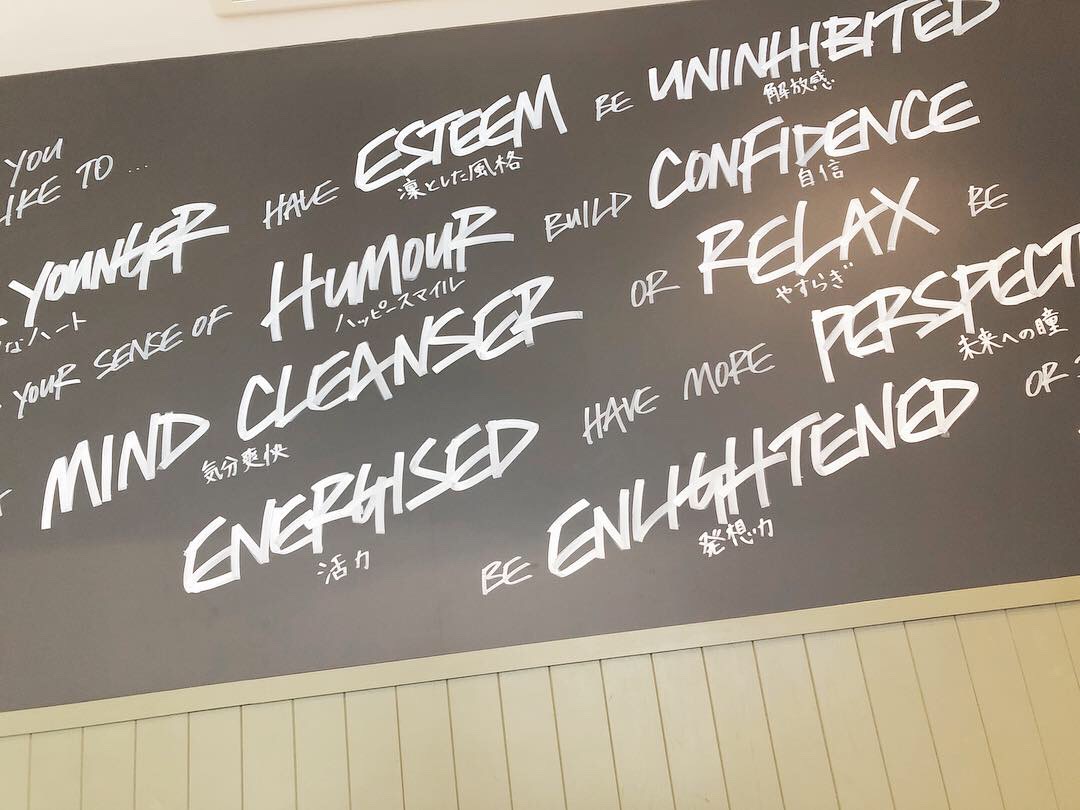 YOU
LIKE TO ...
YOUNGER HAVE ESTEEM BE UNINHIBITED
なハート 凛とした風格 解放感
YOUR SENSE OF HUMOUR BUILD CONFIDENCE
ハッピースマイル 自信
MIND CLEANSER OR RELAX BE
気分爽快 やすらぎ
ENERGISED HAVE MORE PERSPECTI
活力 未来への瞳
BE ENLIGHTENED OR
発想力